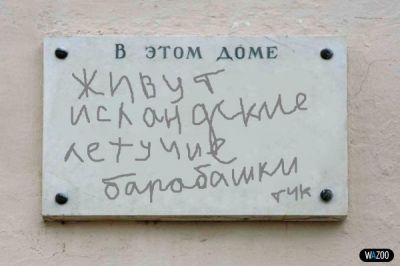 В ЭТОМ ДОМЕ
живут
исландские
летучие
барабашки
тчк
WAZOO